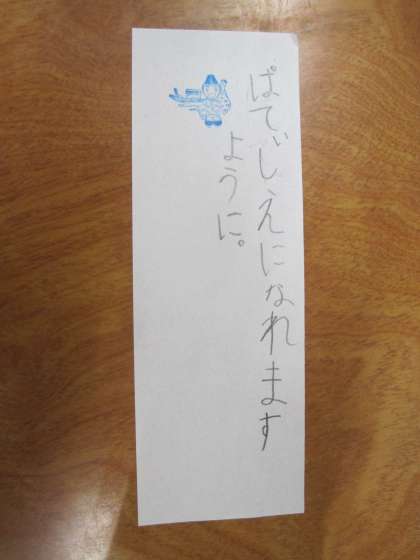 ぱてぃしえになれます
ように。